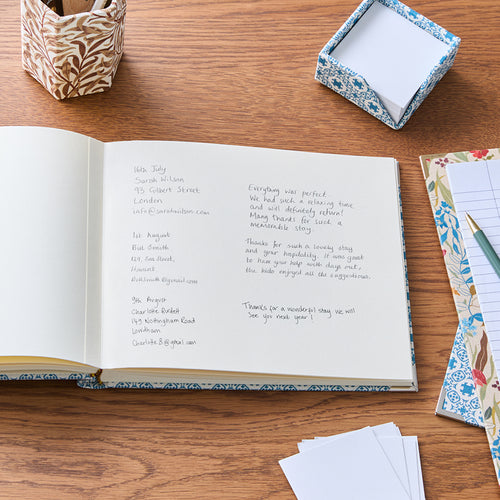 16th July
Sarah Wilson
93 Gilbert Street
London
info@sarahwilson.com
Everything was perfect.
We had such a relaxing time
and will definitely return!
Many thanks for such a
memorable stay.
1st August
Bill Smith
Thanks for such a lovely stay
and your hospitality. It was great
to have your help with days out,
the kids enjoyed all the suggestions.
9th August
Charlotte
149 Nottingham Road
Charlotte.B@gmail.com
Thanks for a wonderful stay we will
see you next year!